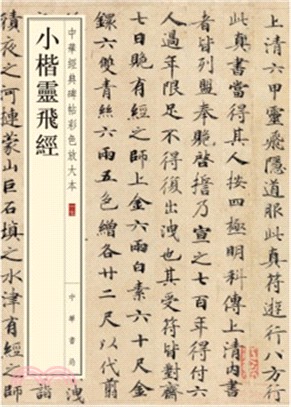 上清六甲靈飛隱道服此真符遊行八方行
此真書當得其人按四極明科傳上清內書
者皆列盟奉贶啓誓乃宣之七百年得付六
人過年限足不得復出洩也其受符皆對齋
七日贶有經之師上金六兩白素六十尺金
鐶六雙青絲六兩五色繒各廿二尺以代翦
洩
詣
積夜之河揵蒙山巨石填之水津有經
中華經典碑帖彩色放大本
小楷靈飛經
中華書局